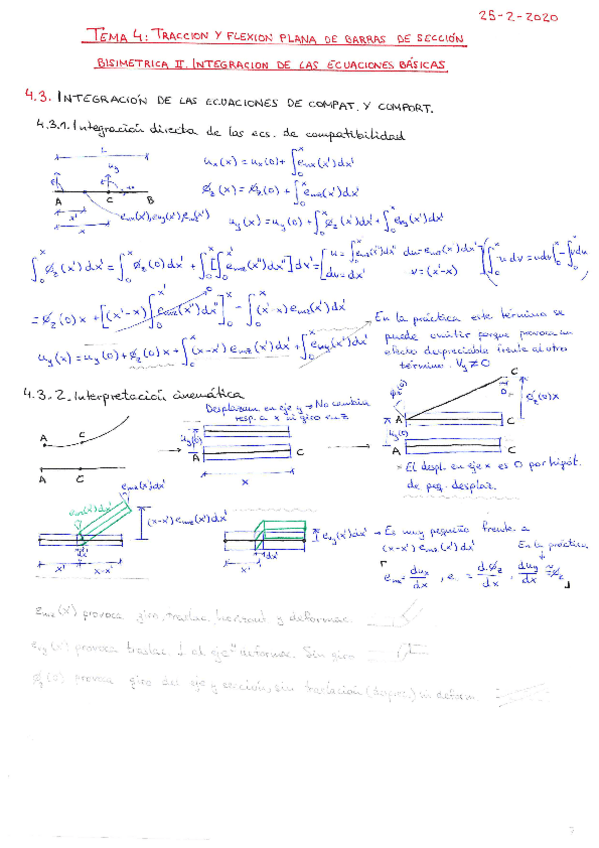 25-2-2020
TEMA 4: TRACCION Y FLEXION PLANA DE BARRAS DE SECCIÓN
BISIMETRICA II. INTEGRACION DE LAS ECUACIONES BÁSICAS
4.3. INTEGRACIÓN DE LAS ECUACIONES DE COMPAT. Y COMPORT.
4.3.1. Integración directa de las ecs. de compatibilidad
L
u_y
A C B
x'
x
e_mx(x'), e_vy(x'), e_mz(x')
u_x(x) = u_x(0) + ∫₀ˣ e_nx(x')dx'
ϕ_z(x) = ϕ_z(0) + ∫₀ˣ e_mz(x')dx'
u_y(x) = u_y(0) + ∫₀ˣ ϕ_z(x')dx' + ∫₀ˣ e_vy(x')dx'
∫₀ˣ ϕ_z(x')dx' = ∫₀ˣ ϕ_z(0)dx' + ∫₀ˣ [∫₀ˣ' e_mz(x'')dx'']dx' = [u = ∫₀ˣ' e_mz(x'')dx'' du = e_mz(x')dx' dv = dx' v = (x'-x)] (∫₀ˣ u dv = u·v]₀ˣ - ∫₀ˣ v du)
= ϕ_z(0)x + [(x'-x)∫₀ˣ' e_mz(x'')dx'']₀ˣ - ∫₀ˣ (x'-x)e_mz(x')dx'
u_y(x) = u_y(0) + ϕ_z(0)x + ∫₀ˣ (x-x')e_mz(x')dx' + ∫₀ˣ e_vy(x')dx'
En la práctica este término se
puede omitir porque provoca un
efecto despreciable frente al otro
término. V_y ≠ 0
4.3.2. Interpretación cinemática
Desplazam. en eje y → No cambia
resp. a x ni giro en z
A C
A C
u_y(0)
A C
x
ϕ_z(0)
C
ϕ_z(0)x
A C
u_y(0)
A C
= El despl. en eje x es 0 por hipót.
de peq. desplaz.
e_mz(x')dx'
e_mz(x')dx'
(x-x')e_mz(x')dx'
x' dx' x-x'
e_vy(x')dx'
x' dx'
→ Es muy pequeño frente a
(x-x')e_mz(x')dx'
En la práctica
e_nx = du_x/dx , e = dϕ_z/dx , du_y/dx ≈ ϕ_z
e_mz(x') provoca giro, traslac. horizont. y deformac.
e_vy(x') provoca traslac. ⊥ al eje deformac. Sin giro
ϕ_z(0) provoca giro del eje y sección, sin traslación (desprec.) ni deform.